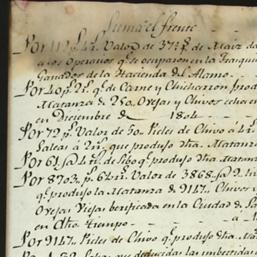 Suma el frente
Por 112 p.s 4 r.s Valor de 37½ f.s de Maiz da
a los Operarios q.e se ocuparon en la Tranquil
Ganados de la Hacienda del Alamo
Por 40 p.s 2 r.s q.e de Carne y Chicharron Prod
Matanza de 250. Ovejas y Chivos echa en
en Diciembre de 1804
Por 72 p.s Valor de 50 Pieles de Chivo á 4 r
Saleas á 2 r.s que produjo dha. Matanz
Por 61 de Sebo q.e produjo dha. Matanz
Por 8703 p.s 6½ r.s Valor de 3868
q.e produjo la Matanza de 9147 Chivos y
Ovejas Viejas berificada en la Ciudad de S
en Otro tiempo
Por 9147 Pieles de Chivo q.e produjo dha. M
q.e deducidas las imbertidas